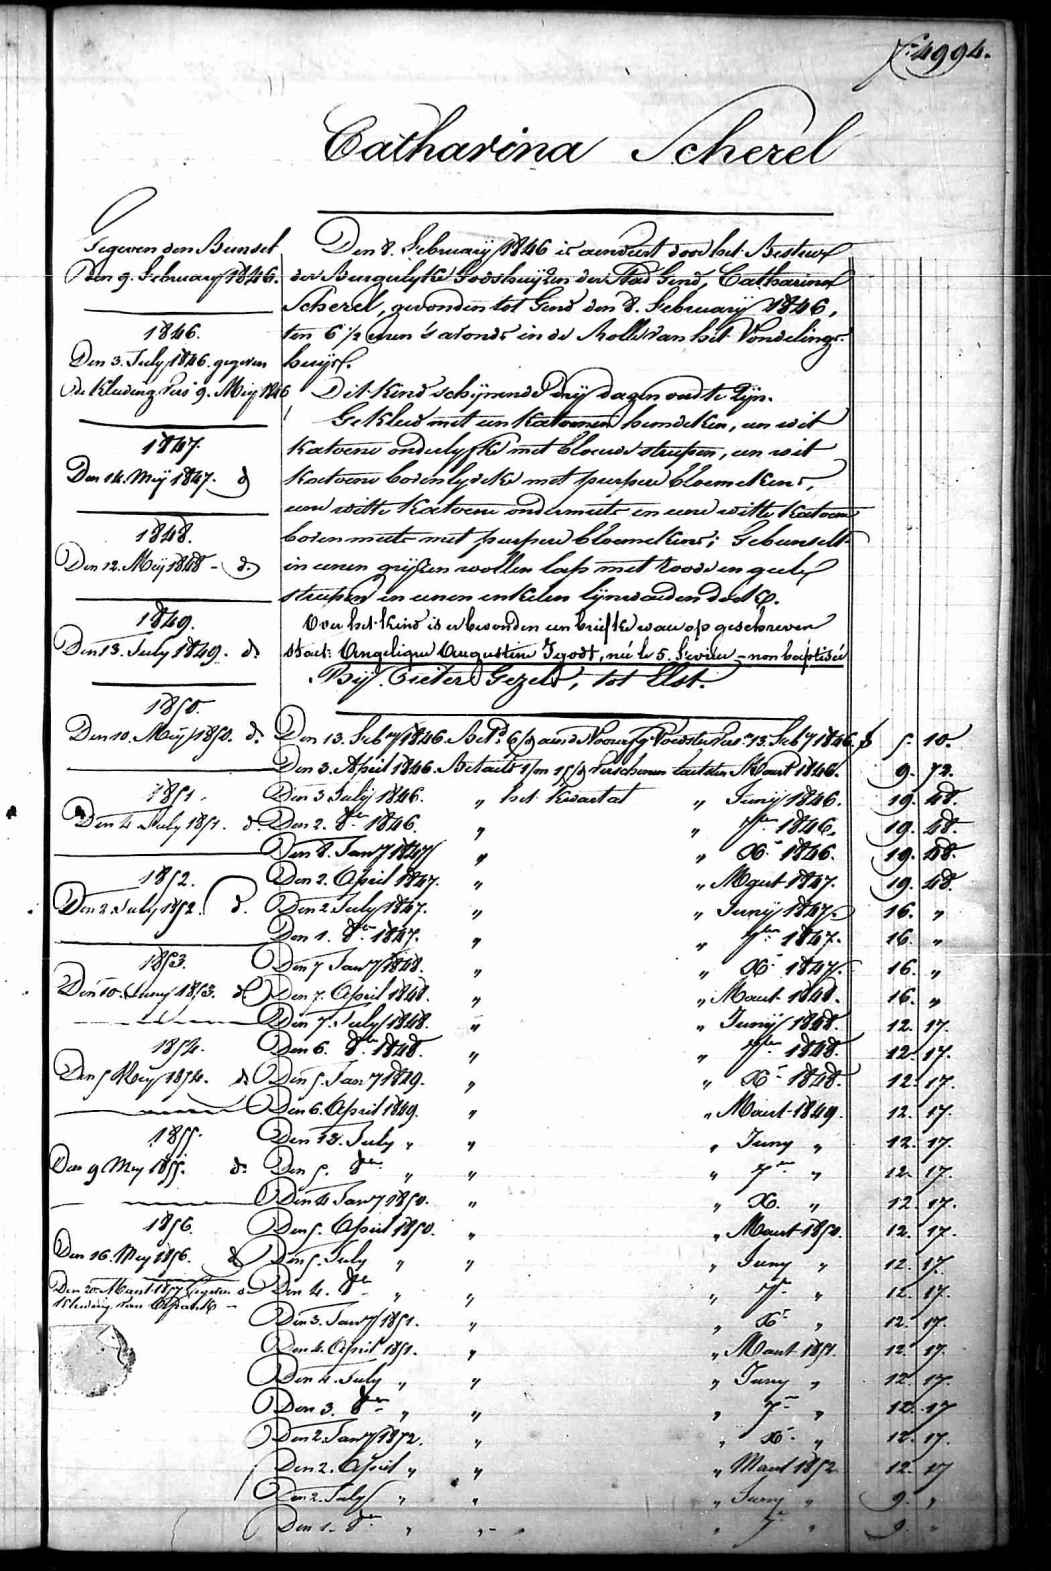 N.º 4994.
Catharina Scherel
Gegeven den Bunsel
Den 9. February 1846.
1846.
Den 3. July 1846. gegeven
de kleeding vers 9. Meij 1846
1847.
Den 14. Meij 1847. d.
1848.
Den 12. Meij 1848 - d.
1849.
Den 13. July 1849. d.
1850.
Den 10. Meij 1850. d.
1851.
Den 4 July 1851. d.
1852.
Den 2 July 1852. d.
1853.
Den 10. Juny 1853. d.
1854.
Den 5 Meij 1854. d.
1855.
Den 9 Mey 1855. d.
1856.
Den 16. Mey 1856. d.
Den 20. Maart 1857 gegeven de
kleeding van
Den 8. February 1846 is aenveert door het Bestier
der Burgerlyke Godshuijzen der Stad Gend, Catharina
Scherel, gevonden tot Gend den 8. February 1846,
ten 6 1/2 uren 's avonds in de Rolle van het Vondeling-
huijs.
Dit kind schijnende drij dagen oud te zijn.
Gekleed met een katoenen hemdeken, een wit
katoene onderlyfke met blouwe streepen, een wit
katoene bovenlyfke met purpere bloemekens,
eene witte katoene ondermuts en eene witte katoene
bovenmuts met purpere bloemekens; Gebunselt
in eenen grijzen wollen lap met roode en geele
streepen en eenen enkelen lijnwaeden doek.
Over het kind is er bevonden een briefke waer op geschreven
staet: Angelique Augustine Igodt, née le 5. Fevrier - non baptisée
Bij Pieter Gezels, tot Elst.
Den 13. Feby 1846. Bet.d 6/m aen de Voorige Voedster vers. 13. Feby 1846. f 5. 10.
Den 3. April 1846. Betaelt 1/m 15/d verschenen laetsten Maart 1846. 9. 72.
Den 3 July 1846. " het kwartael " Junij 1846. 19. 48.
Den 2. 8.er 1846. " " 7.er 1846. 19. 48.
Den 8. Jany 1847 " " X.r 1846. 19. 48.
Den 2. April 1847. " " Maart 1847. 19. 48.
Den 2 July 1847. " " Junij 1847. 16. "
Den 1. 8.er 1847. " " 7.er 1847. 16. "
Den 7 Jany 1848. " " X.r 1847. 16. "
Den 7. April 1848. " " Maart 1848. 16. "
Den 7. July 1848. " " Junij 1848. 12. 17.
Den 6. 8.er 1848. " " 7.er 1848. 12. 17.
Den 5. Jany 1849. " " X.r 1848. 12. 17.
Den 6. April 1849. " " Maart 1849. 12. 17.
Den 13. July " " " Juny " 12. 17.
Den 5. 8.er " " " 7.er " 12. 17.
Den 4 Jany 1850. " " X. " 12. 17.
Den 5. April 1850. " " Maart 1850. 12. 17.
Den 5. July " " " Juny " 12. 17.
Den 4. 8.er " " " 7.r " 12. 17.
Den 3. Jany 1851. " " X.r " 12. 17.
Den 4. April 1851. " " Maart 1851. 12. 17.
Den 4. July " " " Juny " 12. 17.
Den 3. 8.er " " " 7.r " 12. 17
Den 2 Jany 1852. " " X.r " 12. 17.
Den 2. April " " " Maart 1852 12. 17
Den 2. July " " " Juny " 9. "
Den 1. 8.er " " " 7.r " 9. "